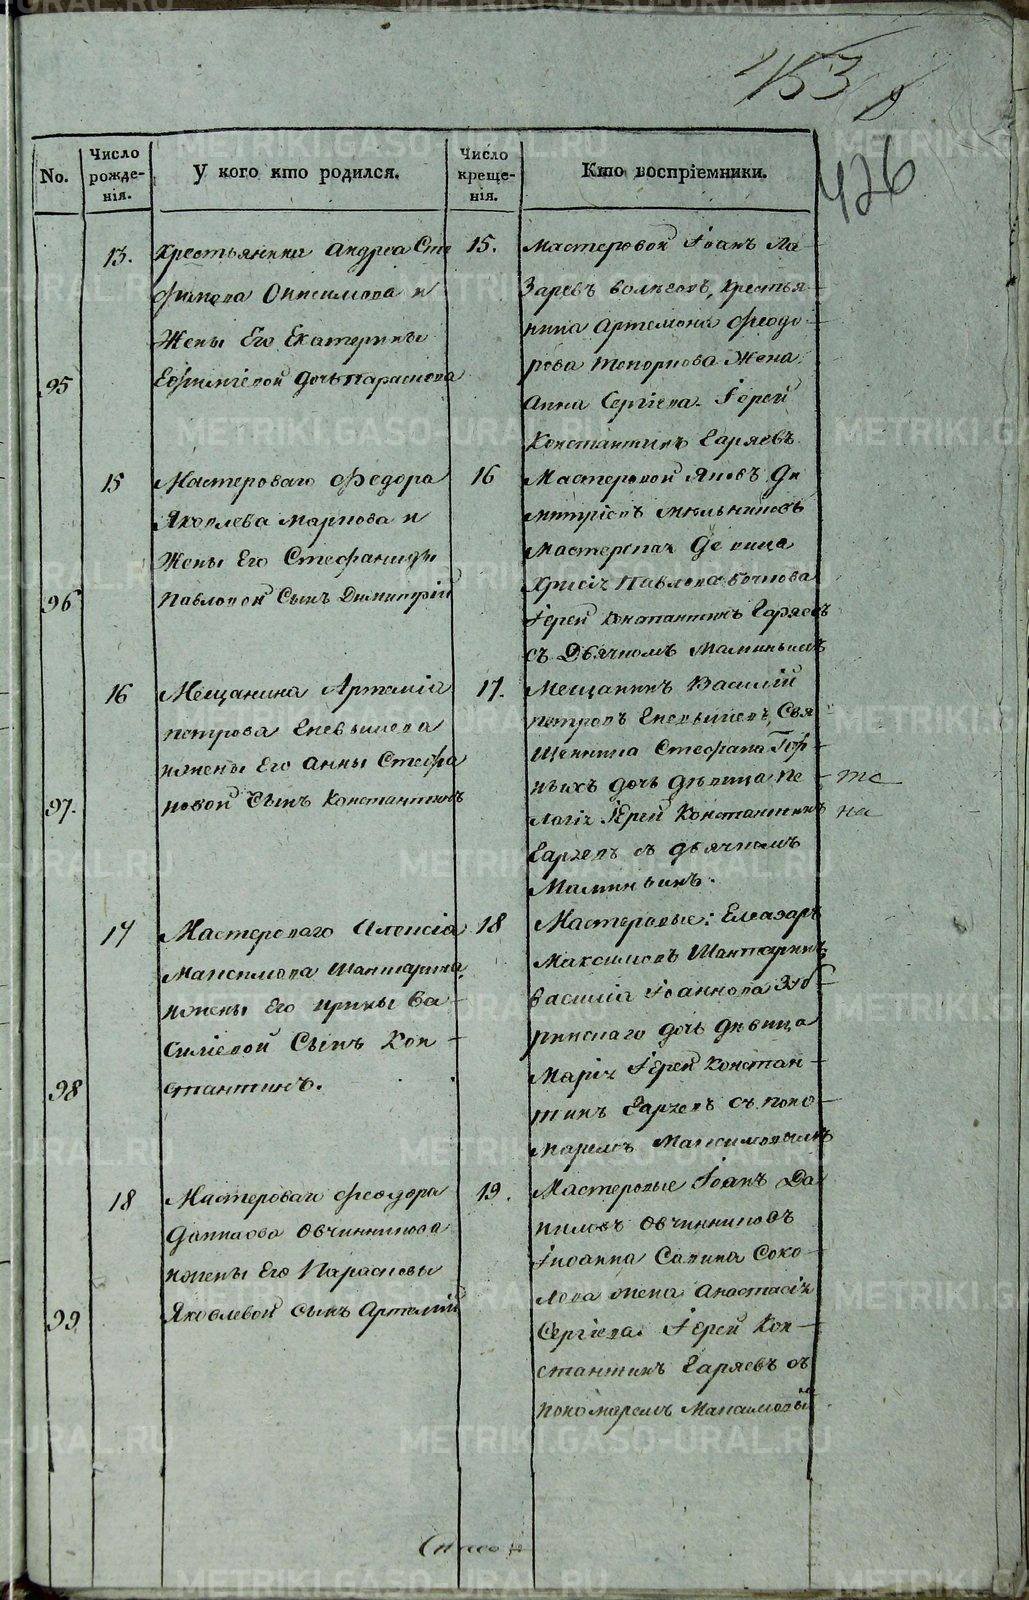 153
426
No.
Число рожде-нія.
У кого кто родился.
Число креще-нія.
Кто воспріемники.
95
13.
Крестьянина Андреа Сте
фанова Онисимова и
Жены Его Екатерины
Ефиміевой дочь Параскева
15.
Мастеровой Іоанъ Ла-
Заревъ Крестья-
нина Артемона Феодо-
рова Топоркова Жена
Анна Сергіева. Іерей
Константинъ Гаряевъ
96
15
Мастероваго Федора
Яковлева Маркова и
Жены Его Стефаниды
Павловой Сынъ Димитрій
16
Мастеровой Яковъ Ди
митріевъ Мельниковъ
Мастерская Девица
Павлова
Іерей Константинъ Гаряевъ
съ Дьячкомъ Маминымъ
97.
16
Мещанина Артемія
петрова
ижены Его Анны Стефа
новой Сынъ Константинъ
17.
Мещанинъ Василій
петровъ Свя-
щенника Стефана
дочь дѣвица Пе-
лагія Іерей Константинъ
Гаряевъ съ дьячкомъ
Маминымъ.
те
на
98
17
Мастероваго Алексія
Максимова Шантарина
ижены Его Ирины Ва-
силіевой Сынъ Кон-
стантинъ.
18
Мастеровые: Елеазаръ
Максимовъ Шантаринъ
Василія Іоаннова
дочь дѣвица
Марія Іерей Констан-
тинъ Гаряевъ съ поно-
маремъ Максимовымъ
99
18
Мастероваго Феодора
Данилова Овчинникова
ижены Его Парасковы
Яковлевой сынъ Артемій
19.
Мастеровые Іоанъ Да
ниловъ Овчинниковъ
Іоанна Савина Соко-
лова жена Анастасія
Сергіева. Іерей Кон-
стантинъ Гаряевъ съ
пономаремъ Максимовы
METRIKI.GASO-URAL.RU